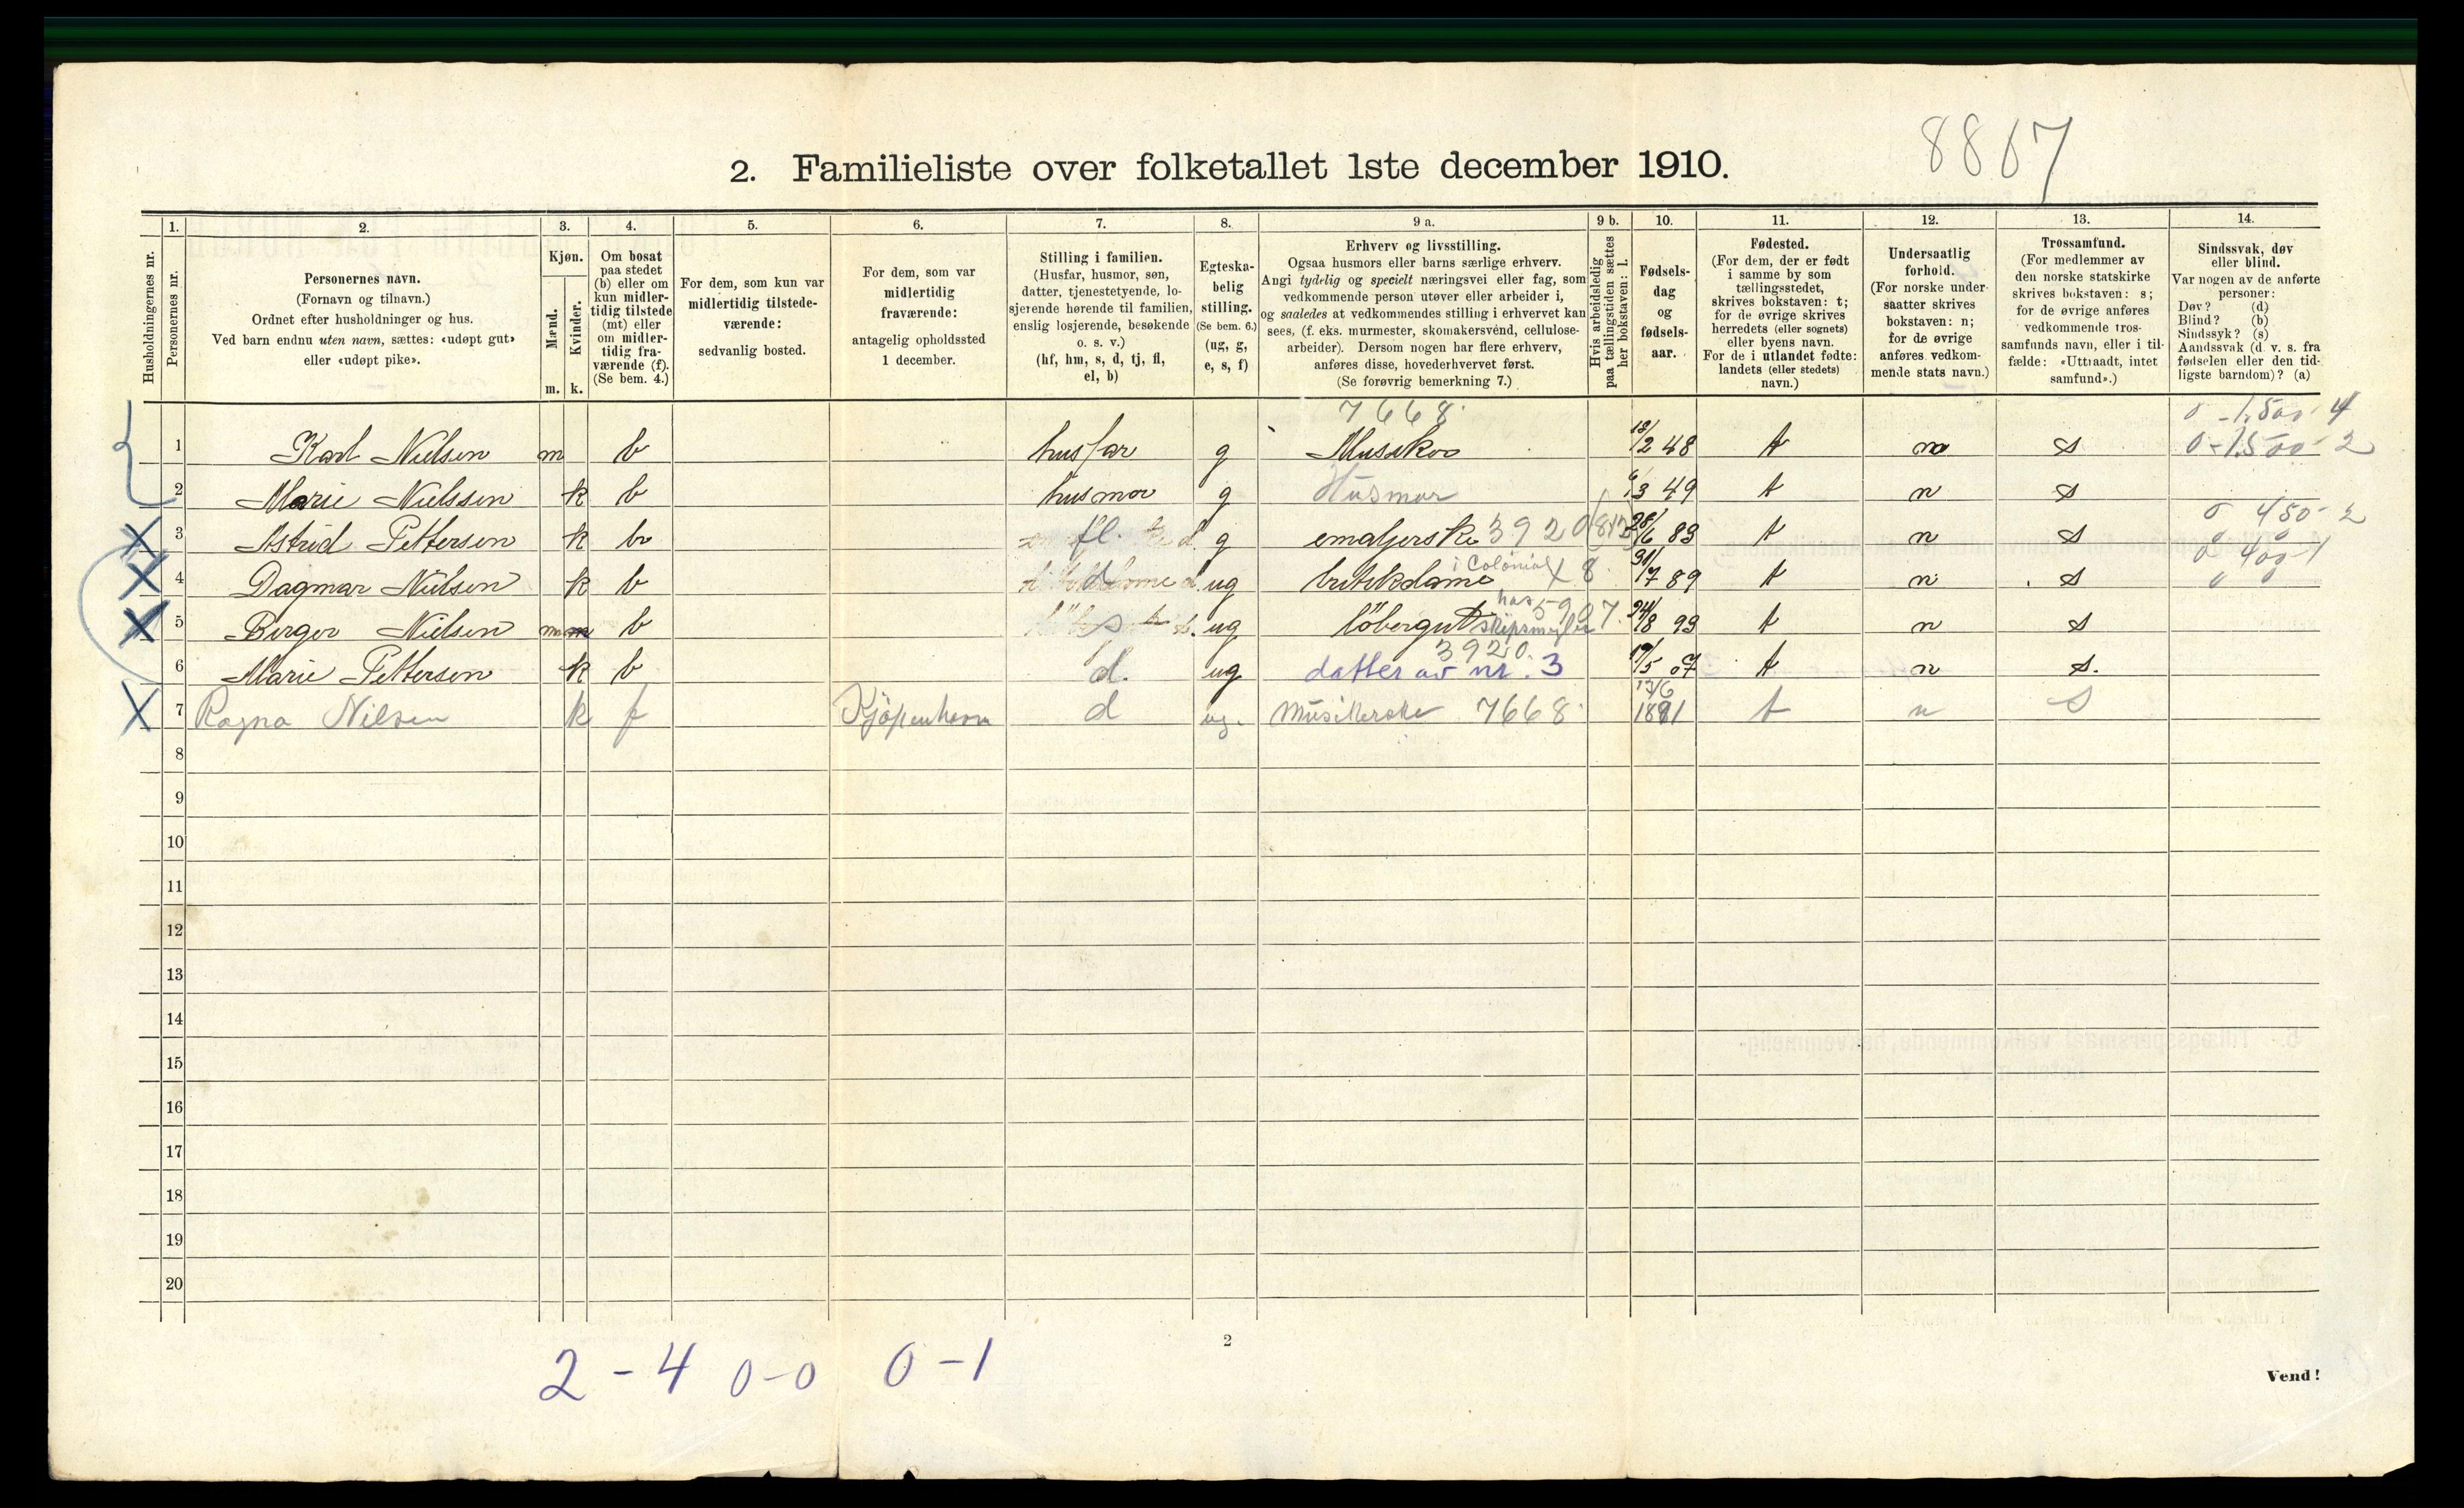 8867
2. Familieliste over folketallet 1ste december 1910.
Husholdningernes nr.
1. Personernes nr.
2. Personernes navn. (Fornavn og tilnavn.) Ordnet efter husholdninger og hus. Ved barn endnu uten navn, sættes: «udøpt gut» eller «udøpt pike».
3. Kjøn. Mænd. m. Kvinder. k.
4. Om bosat paa stedet (b) eller om kun midlertidig tilstede (mt) eller om midlertidig fraværende (f). (Se bem. 4.)
5. For dem, som kun var midlertidig tilstedeværende: sedvanlig bosted.
6. For dem, som var midlertidig fraværende: antagelig opholdssted 1 december.
7. Stilling i familien. (Husfar, husmor, søn, datter, tjenestetyende, losjerende hørende til familien, enslig losjerende, besøkende o. s. v.) (hf, hm, s, d, tj, fl, el, b)
8. Egteskabelig stilling. (Se bem. 6.) (ug, g, e, s, f)
9 a. Erhverv og livsstilling. Ogsaa husmors eller barns særlige erhverv. Angi tydelig og specielt næringsvei eller fag, som vedkommende person utøver eller arbeider i, og saaledes at vedkommendes stilling i erhvervet kan sees, (f. eks. murmester, skomakersvend, cellulosearbeider). Dersom nogen har flere erhverv, anføres disse, hovederhvervet først. (Se forøvrig bemerkning 7.)
9 b. Hvis arbeidsledig paa tællingstiden sættes her bokstaven: l.
10. Fødselsdag og fødselsaar.
11. Fødested. (For dem, der er født i samme by som tællingsstedet, skrives bokstaven: t; for de øvrige skrives herredets (eller sognets) eller byens navn. For de i utlandet fødte: landets (eller stedets) navn.)
12. Undersaatlig forhold. (For norske undersaatter skrives bokstaven: n; for de øvrige anføres vedkommende stats navn.)
13. Trossamfund. (For medlemmer av den norske statskirke skrives bokstaven: s; for de øvrige anføres vedkommende trossamfunds navn, eller i tilfælde: «Uttraadt, intet samfund».)
14. Sindssvak, døv eller blind. Var nogen av de anførte personer: Døv? (d) Blind? (b) Sindssyk? (s) Aandssvak (d. v. s. fra fødselen eller den tidligste barndom)? (a)
7668. 0 - 1.500 - 4
1 Karl Nielsen m b husfar g Musikeo 12/2 48 t n s 0 - 1500 - 2
2 Marie Nielssen k b husmor g Husmor 6/3 49 t n s
0 450 - 2
3 Astrid Pettersen k b fl. g emaljerske 3920 28/6 83 t n s
i Colonial 0 400 - 1
4 Dagmar Nielsen k b d ug butikdame X 8 31/7 89 t n s
hos 5907.
5 Birger Nielsen m b s ug löbergut skipsmegler 24/8 93 t n s
3920.
6 Marie Pettersen k b d. ug datter av nr. 3 17/5 07 t n s.
7 Ragna Nilsen k f Kjøpenhavn d ug. Musikerske 7668. 13/6 1881 t n s
8
9
10
11
12
13
14
15
16
17
18
19
20
2
2 - 4 0 - 0 0 - 1
Vend!